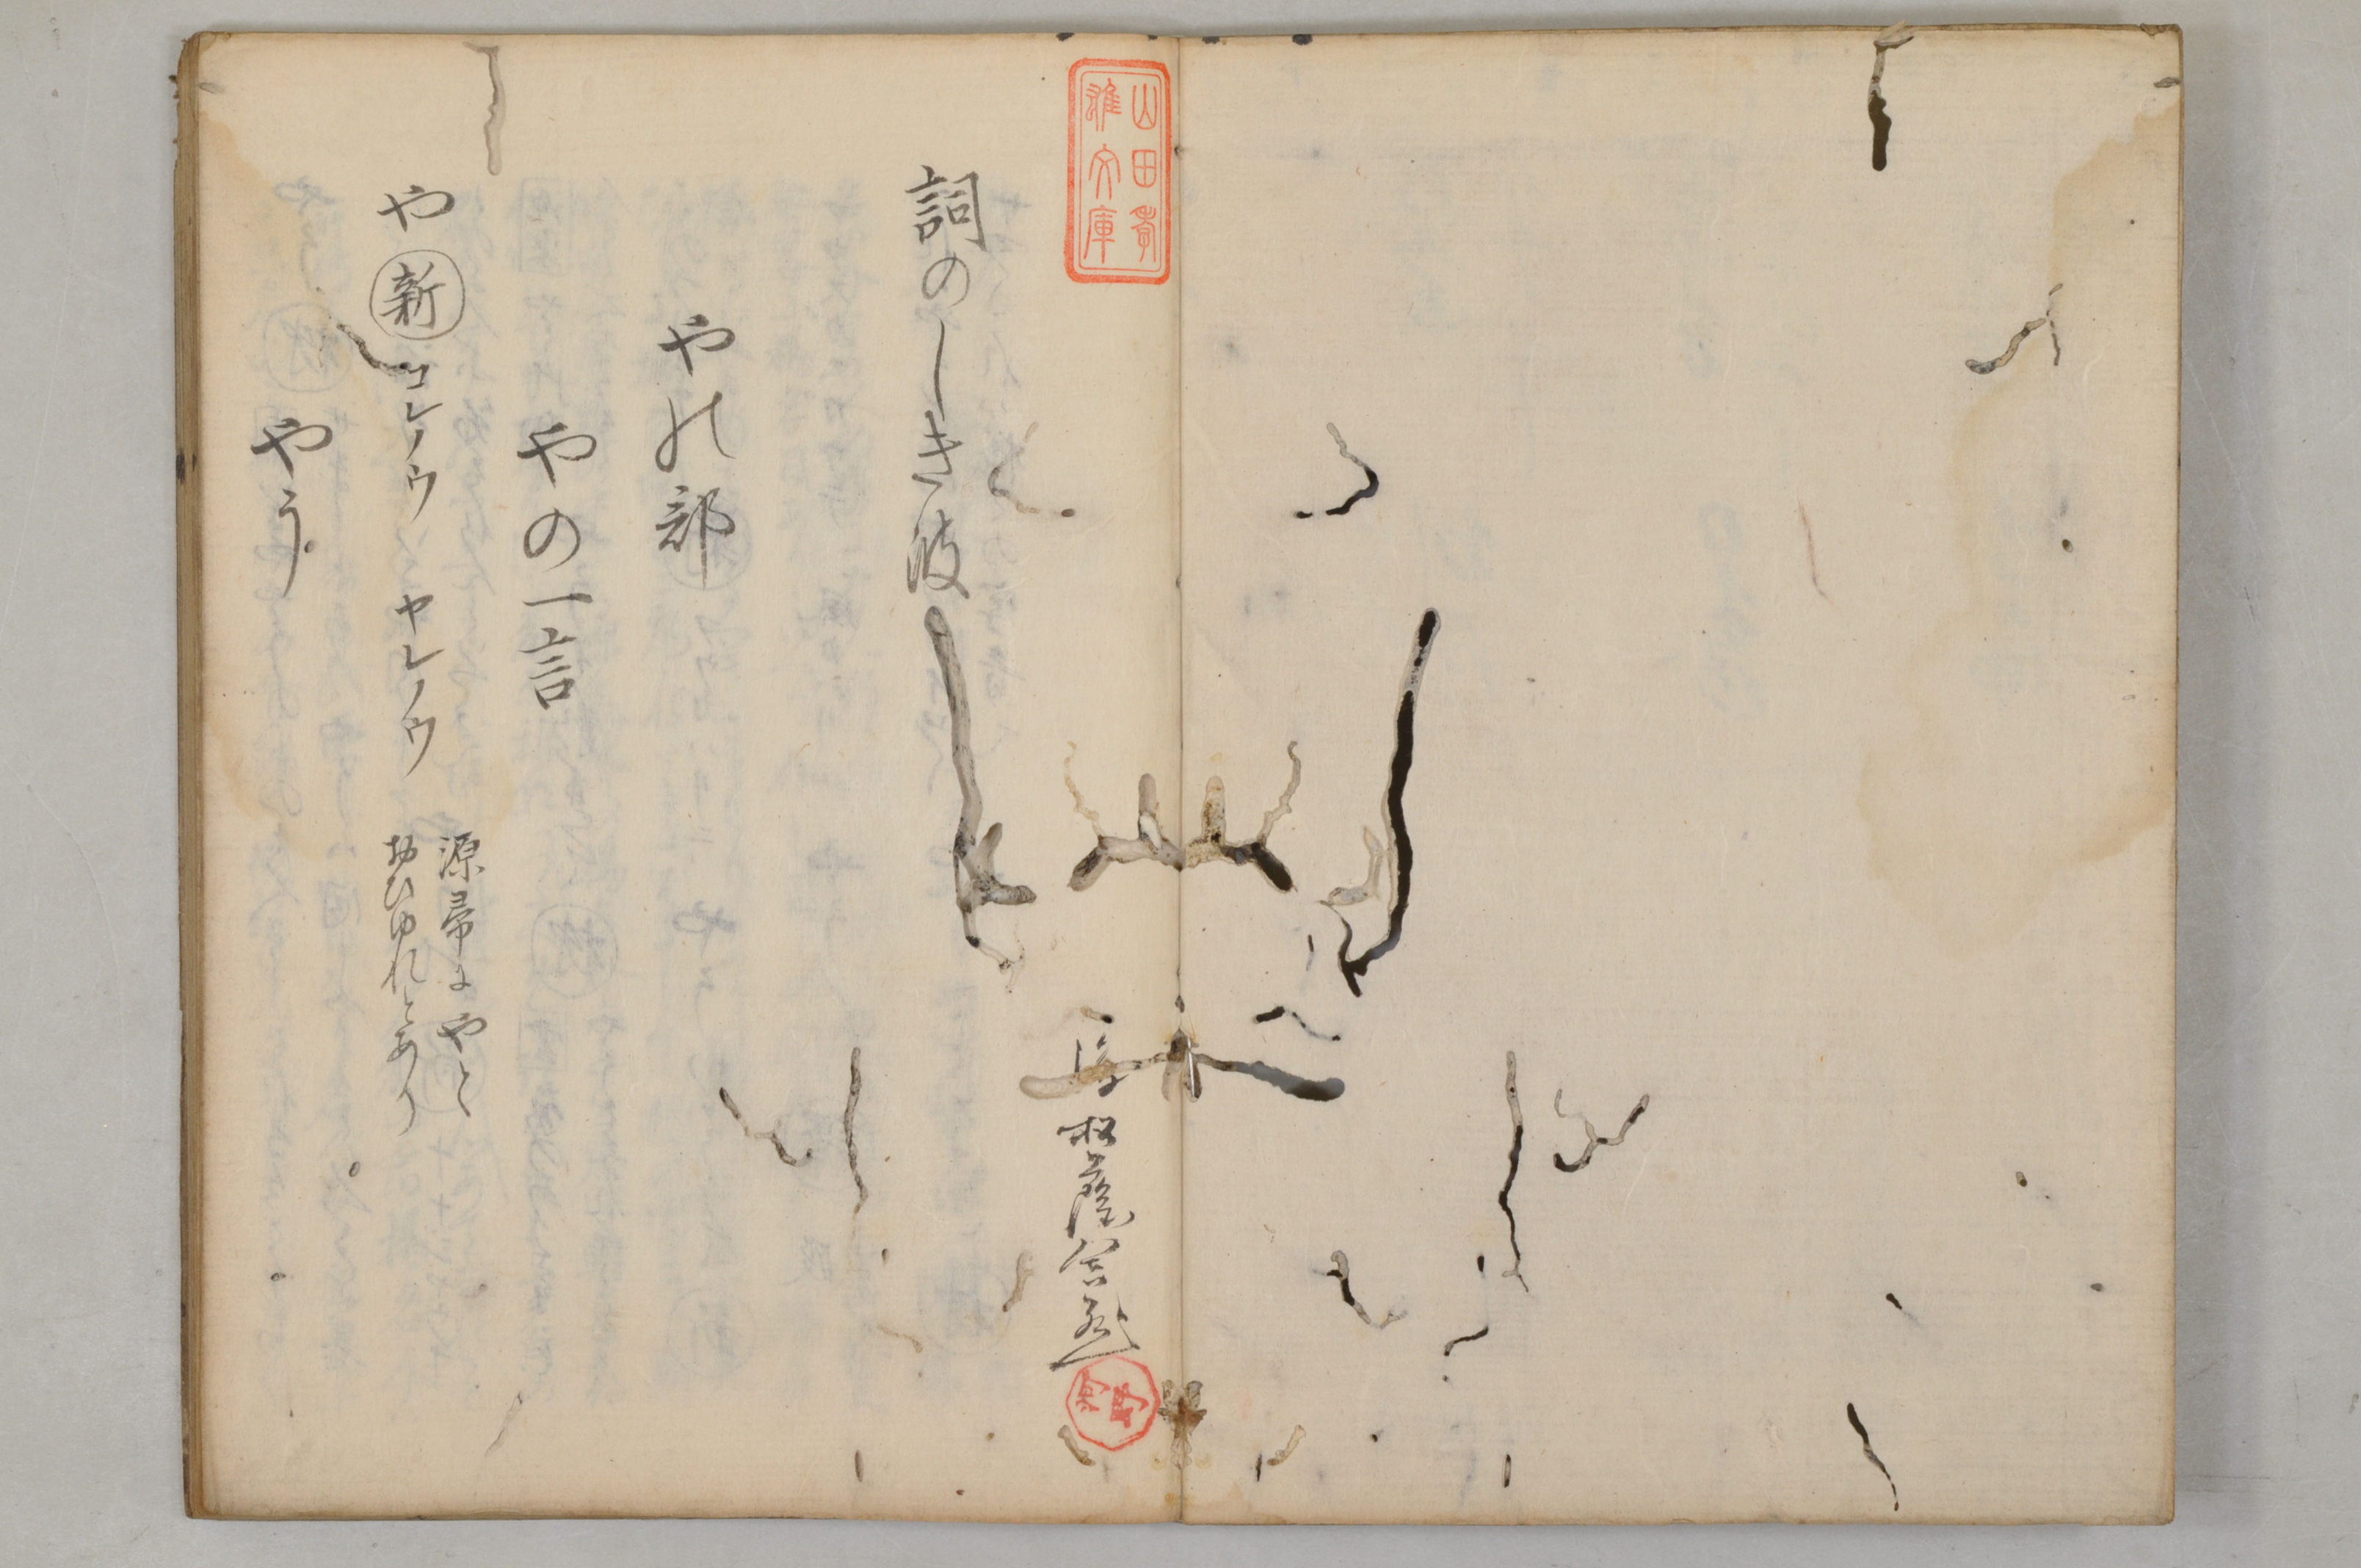 山田孝
雄文庫
詞のしき波
松蔭
やの部
やの一言
や 新 コレノウ ヤレノウ
源帚にやと
おひゆれとあり
やう